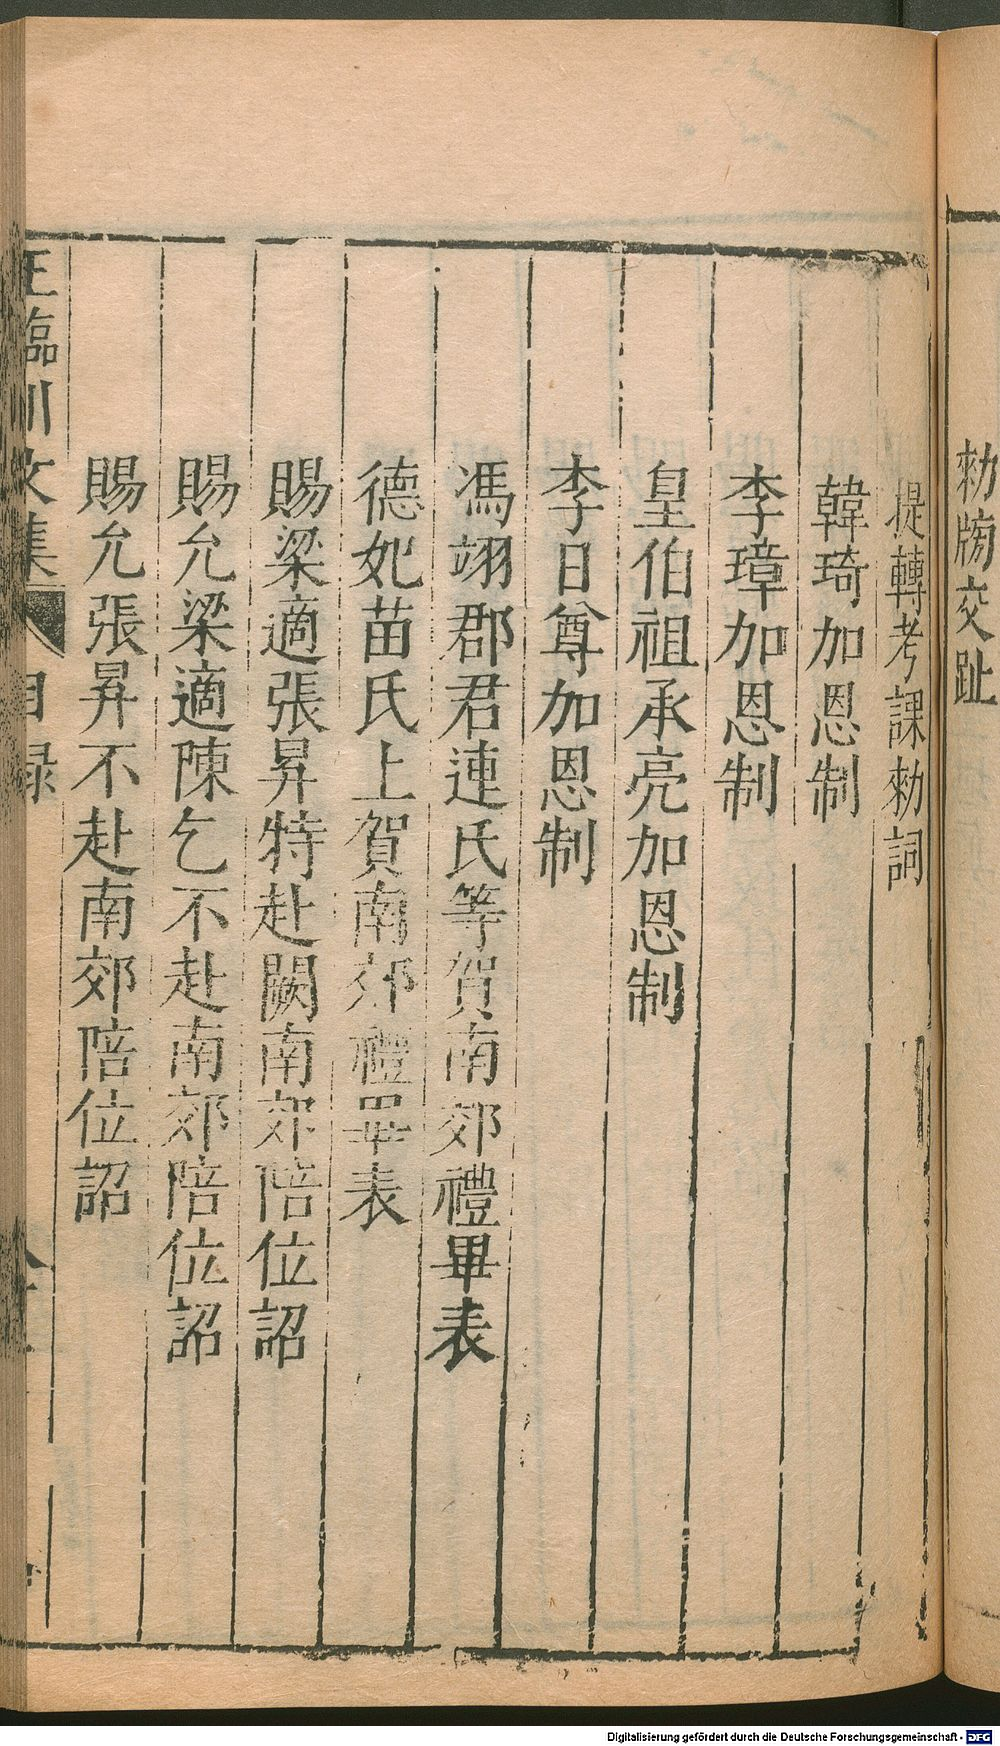 勑牓交趾
提轉考課勑詞
韓琦加恩制
李璋加恩制
皇伯祖承亮加恩制
李日尊加恩制
馮翊郡君連氏等賀南郊禮畢表
德妃苗氏上賀南郊禮畢表
賜梁適張昇特赴闕南郊陪位詔
賜允梁適陳乞不赴南郊陪位詔
賜允張昇不赴南郊陪位詔
王臨川文集 目録
Digitalisierung gefördert durch die Deutsche Forschungsgemeinschaft - DFG